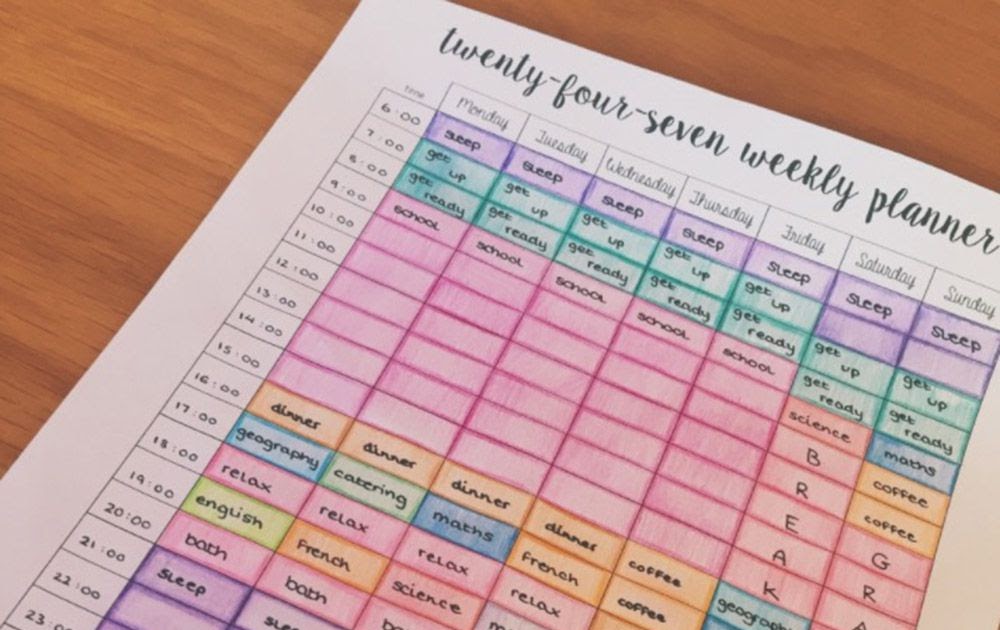 twenty-four-seven weekly planner
time Monday Tuesday Wednesday Thursday Friday Saturday Sunday
6:00 sleep sleep sleep sleep sleep sleep sleep
7:00 get up get up get up get up get up
8:00 get ready get ready get ready get ready get ready get up get up
9:00 school school school school school get ready get ready
10:00 science maths
11:00 B coffee
12:00 R coffee
13:00 E G
14:00 A R
15:00 K A
16:00 dinner dinner dinner dinner coffee
17:00 geography catering maths french coffee
18:00 relax relax relax relax
19:00 english french science
20:00 bath bath
21:00 sleep
22:00
23:00